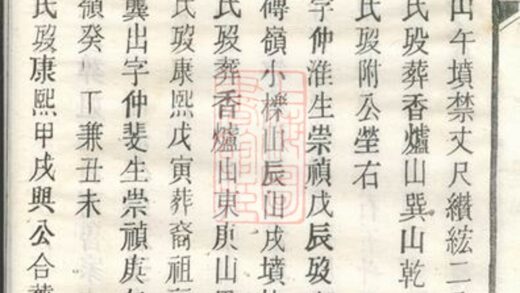 山午墳禁丈尺纘絃二
氏殁葬香爐山巽山乾
氏殁附公塋右
字仲淮生崇禎戊辰殁
傅嶺小櫟山辰山戌墳
氏殁葬香爐山東庚山
氏殁康熙戊寅葬裔祖
龔出字仲斐生崇禎庚
嶺癸丁兼丑未
氏殁康熙甲戌與公合葬